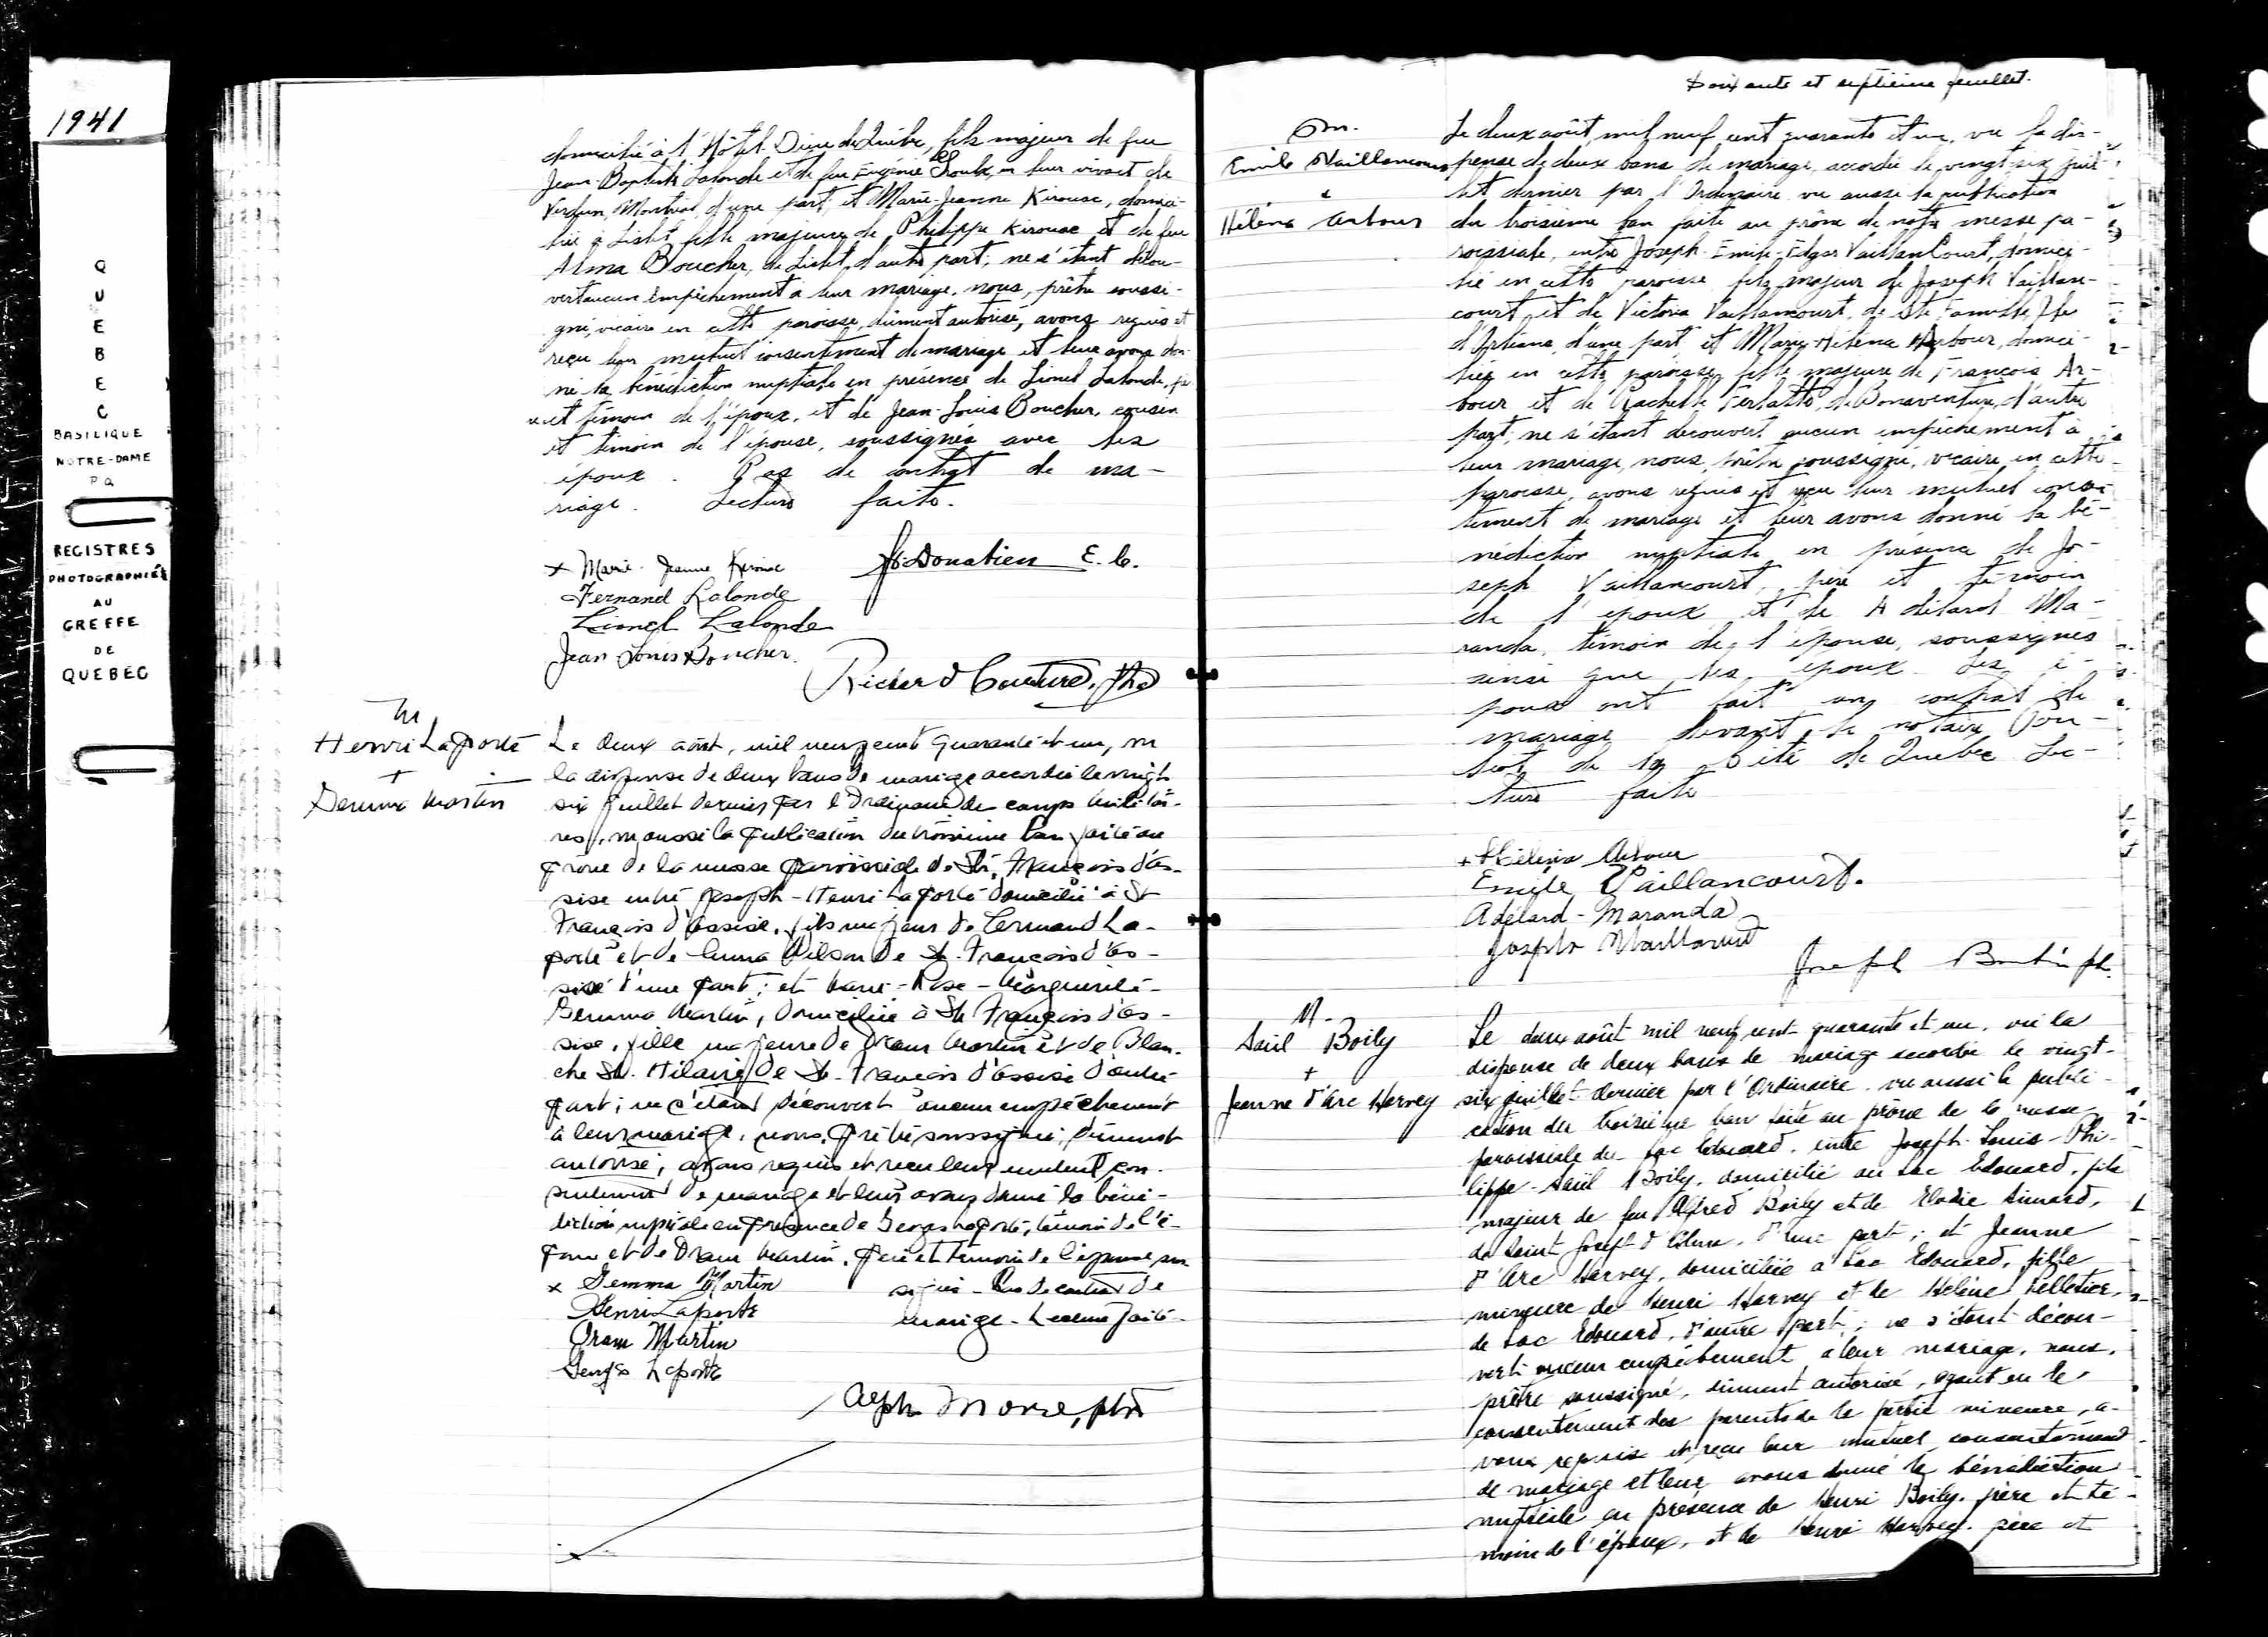 1941
QUEBEC
BASILIQUE
NOTRE-DAME
P Q
REGISTRES
PHOTOGRAPHIÉS
AU
GREFFE
DE
QUEBEC
domicilié à l'Hôtel-Dieu de Québec, fils majeur de feu
Jean-Baptiste Lalonde et de feu Eugénie Groulx, en leur vivant de
Verdun, Montréal, d'une part; et Marie-Jeanne Kirouac, domici-
liée à Lislet, fille majeure de Philippe Kirouac et de feu
Alma Boucher, de Lislet, d'autre part; ne s'étant décou-
vert aucun empêchement à leur mariage, nous, prêtre soussi-
gné, vicaire en cette paroisse, dûment autorisé, avons requis et
reçu leur mutuel consentement de mariage et leur avons don-
né la bénédiction nuptiale en présence de Lionel Lalonde,
et témoin de l'époux, et de Jean-Louis Boucher, cousin
et témoin de l'épouse, soussignés avec les
époux. Pas de contrat de ma-
riage. Lecture faite.
x Marie-Jeanne Kirouac
Fr. Donatien E. c.
Fernand Lalonde
Lionel Lalonde
Jean Louis Boucher
Richard Couture, ptre
M
Henri Laporte
+
Gemma Martin
Le deux août, mil neuf cent quarante et un, vu
la dispense de deux bans de mariage accordée le vingt
six juillet dernier par l'Ordinaire des camps militai-
res, vu aussi la publication du troisième ban faite au
prône de la messe paroissiale de St. François d'As-
sise entre Joseph-Henri Laporte domicilié à St
François d'Assise, fils majeur de La-
porte et de Wilson de St. François d'As-
sise d'une part; et Marie-Rose-Marguerite-
Gemma Martin, domiciliée à St. François d'As-
sise, fille majeure de Oram Martin et de Blan-
che St. Hilaire de St. François d'Assise d'autre
part; ne s'étant découvert aucun empêchement
à leur mariage, nous, prêtre soussigné, dûment
autorisé, avons requis et reçu leur mutuel con-
sentement de mariage et leur avons donné la béné-
diction nuptiale en présence de Georges Laporte, témoin de l'é-
poux et de Oram Martin, père et témoin de l'épouse sous
signés - Pas de contrat de
mariage - Lecture faite -
x Gemma Martin
Henri Laporte
Oram Martin
Georges Laporte
Alph. Morse, ptre
Soixante et septième feuillet.
M.
Emile Vaillancourt
&
Hélène Arbour
Le deux août, mil neuf cent quarante et un, vu la dis-
pense de deux bans de mariage, accordée le vingt-six juil-
let dernier par l'Ordinaire vu aussi la publication
du troisième ban faite au prône de notre messe pa-
roissiale, entre Joseph-Emile-Edgar Vaillancourt, domici-
lié en cette paroisse, fils majeur de Joseph Vaillan-
court et de Victoria Vaillancourt, de Ste Famille, Ile
d'Orléans, d'une part et Marie-Héléna Arbour, domici-
liée en cette paroisse, fille majeure de François Ar-
bour et de Rachelle Ferlatte, de Bonaventure, d'autre
part; ne s'étant découvert aucun empêchement à
leur mariage, nous, prêtre soussigné, vicaire en cette
paroisse, avons requis et reçu leur mutuel consen-
tement de mariage et leur avons donné la bé-
nédiction nuptiale en présence de Jo-
seph Vaillancourt, père et témoin
de l'époux et de Adélard Ma-
randa, témoin de l'épouse, soussignés
ainsi que les époux. Les é-
poux ont fait un contrat de
mariage devant le notaire
de la cité de Québec. Lec-
ture faite
+ Héléna Arbour
Emile Vaillancourt.
Adélard-Maranda
Joseph Vaillancourt
Joseph Boutin ptre.
M.
Saül Boily
+
Jeanne d'Arc Harvey
Le deux août mil neuf cent quarante et un, vu la
dispense de deux bans de mariage accordée le vingt-
six juillet dernier par l'Ordinaire, vu aussi la publi-
cation du troisième ban faite au prône de la messe
paroissiale du Lac Edouard, entre Joseph-Louis-Phi-
lippe-Saül Boily, domicilié au Lac Edouard, fils
majeur de feu Alfred Boily et de Elodie Simard,
de Saint Joseph d'Alma, d'une part; et Jeanne
d'Arc Harvey, domiciliée à Lac Edouard, fille
mineure de Henri Harvey et de Hélène Pelletier,
de Lac Edouard, d'autre part; ne s'étant décou-
vert aucun empêchement à leur mariage, nous,
prêtre soussigné, dûment autorisé, ayant eu le
consentement des parents de la partie mineure, a-
vons requis et reçu leur mutuel consentement
de mariage et leur avons donné la bénédiction
nuptiale en présence de Henri Boily, frère et té-
moin de l'époux, et de Henri Harvey, père et